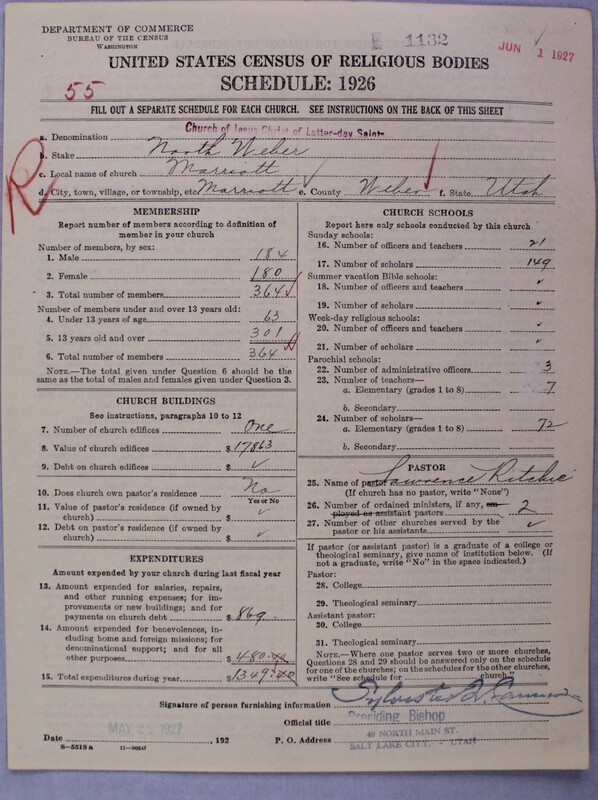 DEPARTMENT OF COMMERCE
BUREAU OF THE CENSUS
WASHINGTON
1132
JUN 1 1927
UNITED STATES CENSUS OF RELIGIOUS BODIES
SCHEDULE: 1926
55
FILL OUT A SEPARATE SCHEDULE FOR EACH CHURCH. SEE INSTRUCTIONS ON THE BACK OF THIS SHEET
a. Denomination Church of Jesus Christ of Latter-day Saints
b. Stake North Weber
c. Local name of church Marriott
d. City, town, village, or township, etc. Marriott e. County Weber f. State Utah
R
MEMBERSHIP
Report number of members according to definition of
member in your church
Number of members, by sex:
1. Male 184
2. Female 180
3. Total number of members 364
Number of members under and over 13 years old:
4. Under 13 years of age 63
5. 13 years old and over 301
6. Total number of members 364
NOTE.—The total given under Question 6 should be the
same as the total of males and females given under Question 3.
CHURCH BUILDINGS
See instructions, paragraphs 10 to 12
7. Number of church edifices One
8. Value of church edifices $17863
9. Debt on church edifices $ ✓
10. Does church own pastor's residence No
Yes or No
11. Value of pastor's residence (if owned by
church) $ ✓
12. Debt on pastor's residence (if owned by
church) $ ✓
EXPENDITURES
Amount expended by your church during last fiscal year
13. Amount expended for salaries, repairs,
and other running expenses; for im-
provements or new buildings; and for
payments on church debt $ 869
14. Amount expended for benevolences, in-
cluding home and foreign missions; for
denominational support; and for all
other purposes $ 480.40
15. Total expenditures during year $1349.40
CHURCH SCHOOLS
Report here only schools conducted by this church
Sunday schools:
16. Number of officers and teachers 21
17. Number of scholars 149
Summer vacation Bible schools:
18. Number of officers and teachers ✓
19. Number of scholars ✓
Week-day religious schools:
20. Number of officers and teachers ✓
21. Number of scholars ✓
Parochial schools:
22. Number of administrative officers 3
23. Number of teachers—
a. Elementary (grades 1 to 8) 7
b. Secondary
24. Number of scholars—
a. Elementary (grades 1 to 8) 72
b. Secondary
PASTOR
25. Name of pastor Lawrence Ritchie
(If church has no pastor, write "None")
26. Number of ordained ministers, if any, em-
ployed as assistant pastors 2
27. Number of other churches served by the
pastor or his assistants ✓
If pastor (or assistant pastor) is a graduate of a college or
theological seminary, give name of institution below. (If
not a graduate, write "No" in the space indicated.)
Pastor:
28. College
29. Theological seminary
Assistant pastor:
30. College
31. Theological seminary
NOTE.—Where one pastor serves two or more churches,
Questions 28 and 29 should be answered only on the schedule
for one of the churches; on the schedules for the other churches,
write "See schedule for church."
Signature of person furnishing information Sylvester Q. Cannon
Official title Presiding Bishop
MAY 25 1927
Date , 192 P. O. Address 40 NORTH MAIN ST.
SALT LAKE CITY, - UTAH